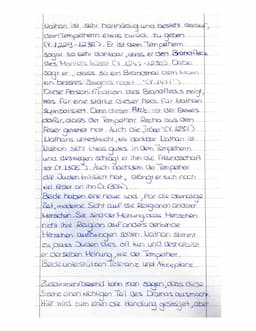 Nathan ist sehr hartnäckig und besteht darauf,
dem Tempelherrn etwas zurück zu geben
Er ist dem Tempelherrn
sogar so sehr dankbar, dass er den Brandfleck
des Mantels küsst (V. 1247-1250). Dabei
sagt er, dass so ein Brandmal dem Mann
ein besseres Zeugnis redet
Diese Personifikation des Brandflecks zeigt,
was für eine starke Dieser Fleck für Nathan
symbolisiert. Denn dieser Fleck ist der Beweis
dafür, dass der Tempelherr Recha aus dem
Feuer gerettet hat. Auch die Träne (V. 1251)
Nathans unterstreicht, wie dankbar Nathan ist.
Nathan sieht etwas gutes in dem Tempelherrn
und deswegen schlägt er ihm die Freundschaft
vor Auch nachdem der Tempelherr
die Juden kritisiert hat, drängt er sich noch
viel fester an ihn
Beide haben eine neue und für die damalige
Zeit, moderne Sicht auf die Religionen anderer
Menschen. Sie sind der Meinung, dass Menschen
nicht ihre Religion auf anders denkende
Menschen aufzwingen sollen. Nathan stimmt
zu, dass Juden dies oft tun und deshalb ist
er derselben Meinung, wie der Tempelherr.
Beide unterstützen Toleranz und Akzeptanz.
Zusammenfassend kann man sagen, dass diese
Szene einen wichtigen Teil des Dramas ausmacht.
Hier wird zum einen die Handlung gesteigert, aber